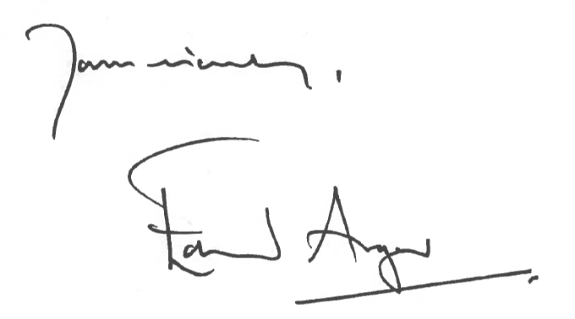 Yours sincerely,
Edward Argar